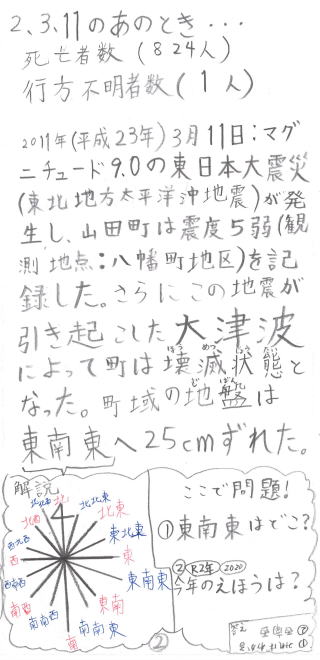 2、3.11のあのとき・・・
死亡者数（824人）
行方不明者数（1人）
2011年(平成23年)3月11日:マグ
ニチュード9.0の東日本大震災
(東北地方太平洋沖地震)が発
生し、山田町は震度5弱(観
測地点:八幡町地区)を記
録した。さらにこの地震が
引き起こした、大津波
によって町は壊滅状態と
なった。町域の地盤は
東南東へ25cmずれた。
解説
北
北北東
北東
東北東
東
東南東
東南
南南東
南
南南西
南西
西南西
西
西北西
北西
北北西
ここで問題!
①東南東はどこ?
②R2年 2020
今年のえほうは?
答え
②